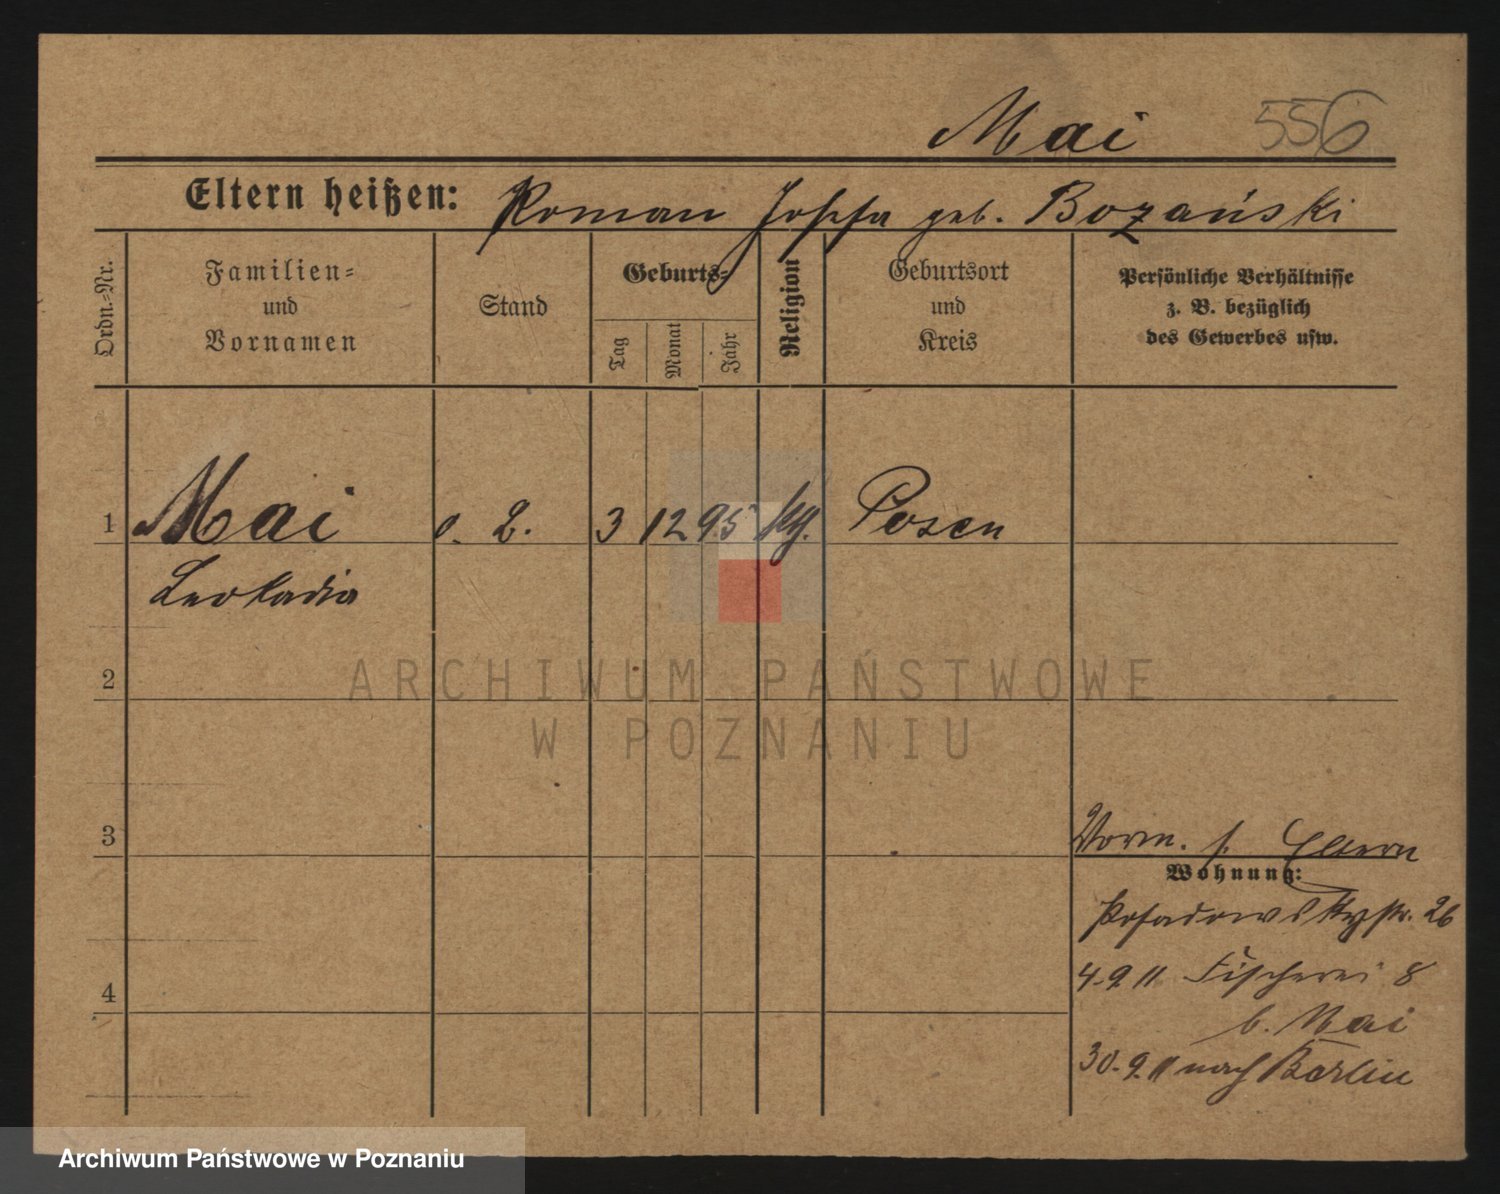 Mai 556
Eltern heißen: Roman Josefa geb. Bozański
Ordn.=Nr.
Familien=
und
Vornamen
Stand
Geburts=
Tag
Monat
Jahr
Religion
Geburtsort
und
Kreis
Persönliche Verhältnisse
z. B. bezüglich
des Gewerbes usw.
1 Mai 3 12 95 Posen
Leokadia
2
3
Vorm. s. Eltern
Wohnung:
Posadowskystr. 26
4
4.9.11 Fischerei 8
b. Mai
30.9.11 nach Berlin
ARCHIWUM PAŃSTWOWE
W POZNANIU
Archiwum Państwowe w Poznaniu